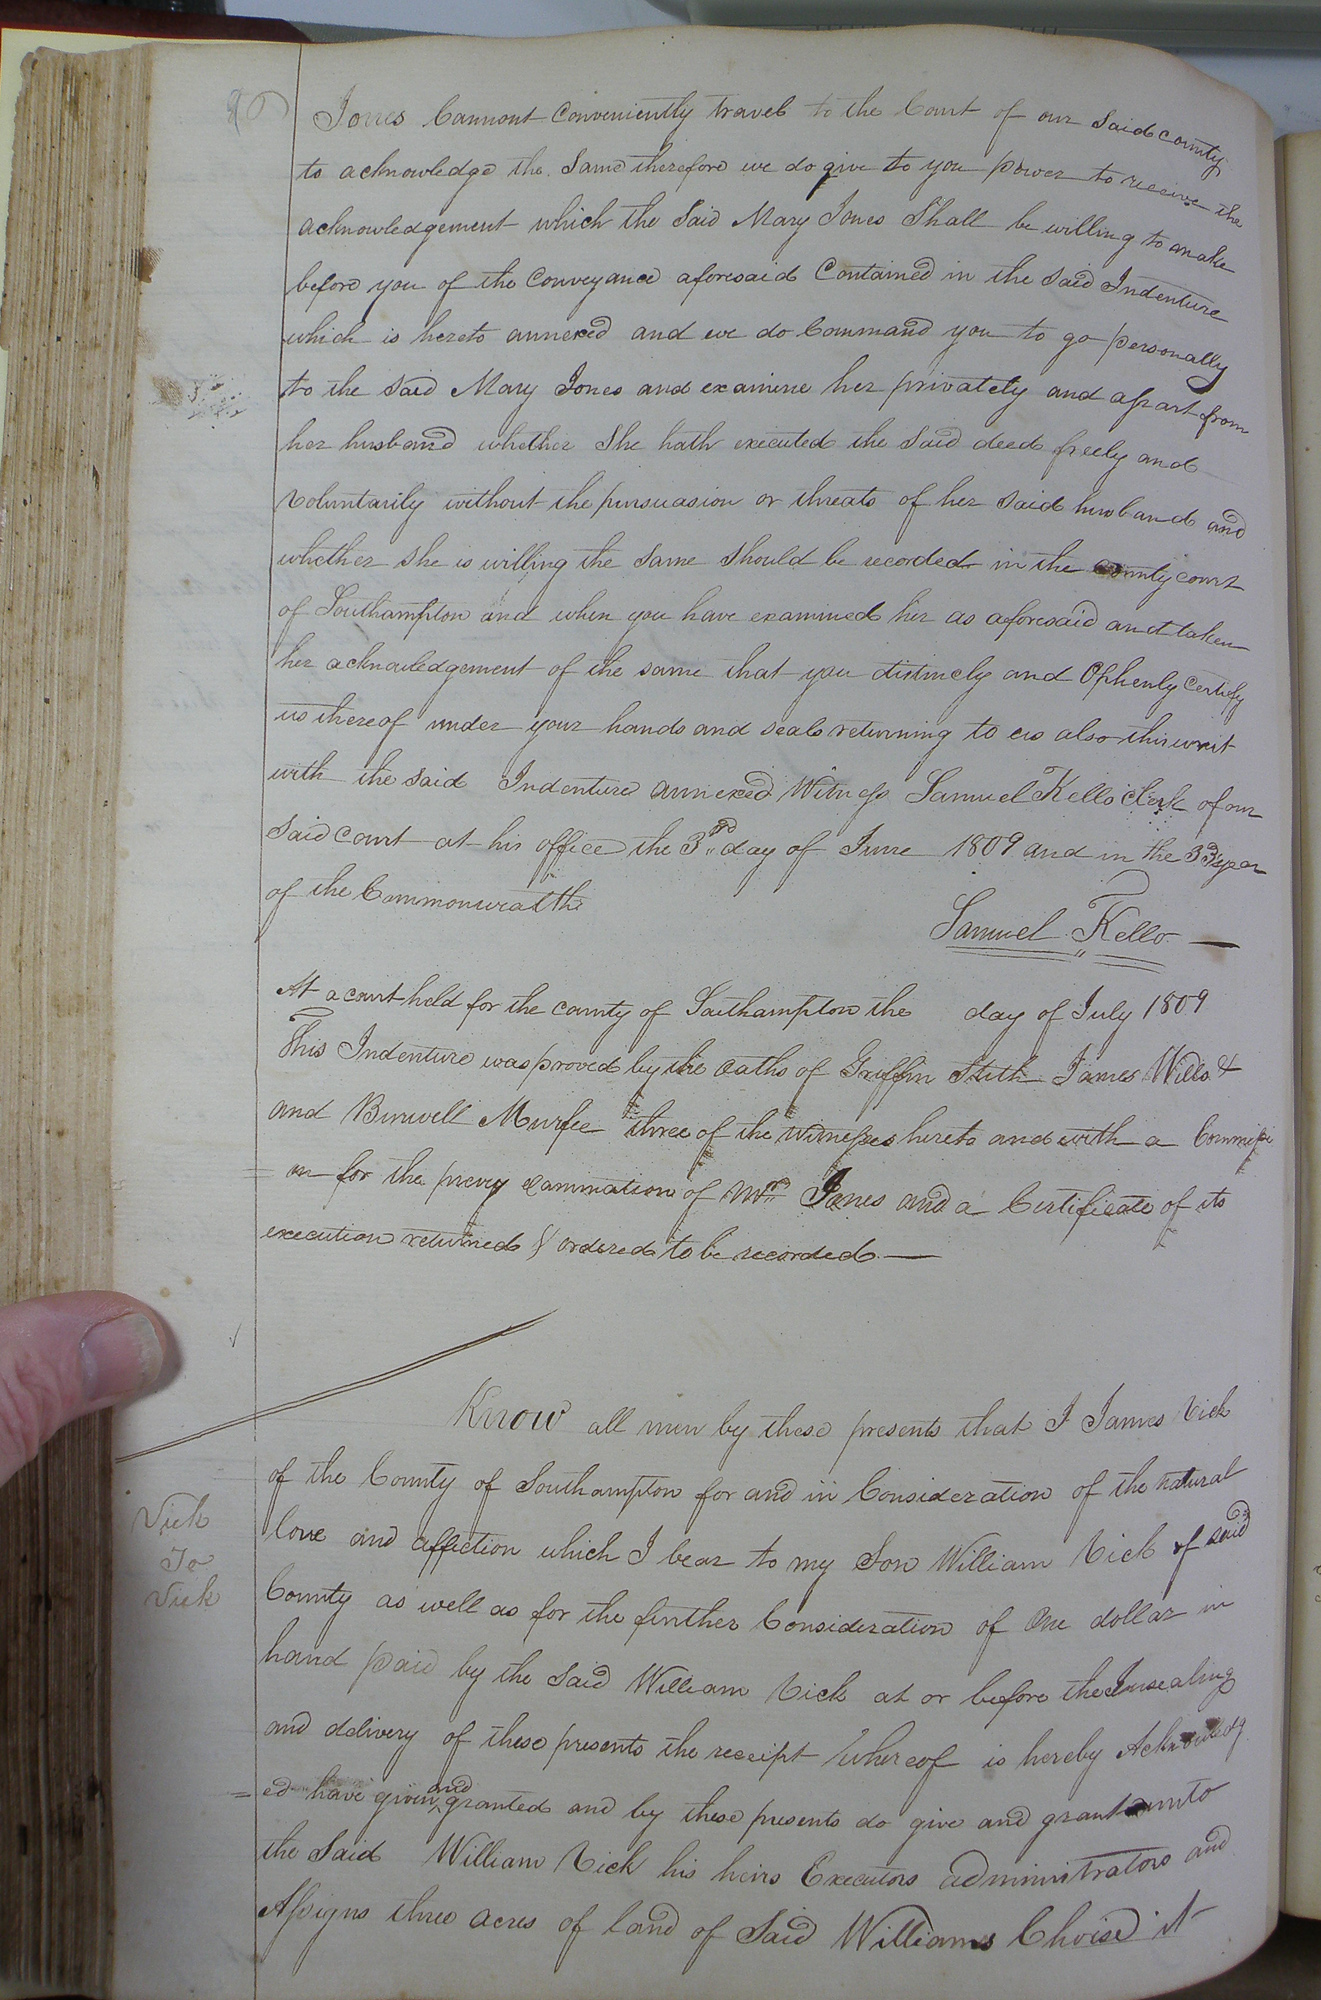 Jones Cannont Conveniently travel to the Court of our Said county
to acknowledge the Same therefore we do give to you power to receive the
acknowledgement which the Said Mary Jones Shall be willing to make
before you of the Conveyance aforesaid Contained in the Said Indenture
which is hereto annexed and we do Command you to go personally
to the Said Mary Jones and examine her privately and apart from
her husband whether She hath executed the Said deed freely and
Voluntarily without the pursuasion or threats of her Said husband and
whether she is willing the Same should be recorded in the county court
of Southampton and when you have examined her as aforesaid and taken
her acknowledgement of the same that you distincly and Ophenly Certify
us thereof under your hands and seals returning to us also this writ
with the said Indenture annexed Witness Samuel Kello Clerk of our
Said court at his office the 3rd day of June 1809 and in the 33d year
of the Commonwealth
Samuel Kello
At a court held for the county of Southampton the day of July 1809
This Indenture was proved by the oaths of Griffin Stith James Wills &
and Burwell Murfee three of the witnesses hereto and with a Commissi
= on for the privy examination of Mrs Jones and a Certificate of its
execution returned & ordered to be recorded
Know all men by these presents that I James Vick
of the County of Southampton for and in Consideration of the natural
Vick
To
Vick
love and affection which I bear to my Son William Vick of said
County as well as for the further Consideration of One dollar in
hand paid by the Said William Vick at or before the Insealing
and delivery of these presents the receipt whereof is hereby Acknowledg
= ed have given and granted and by these presents do give and grant unto
the Said William Vick his heirs Executors administrators and
Assigns three acres of land of Said Williams Choise it